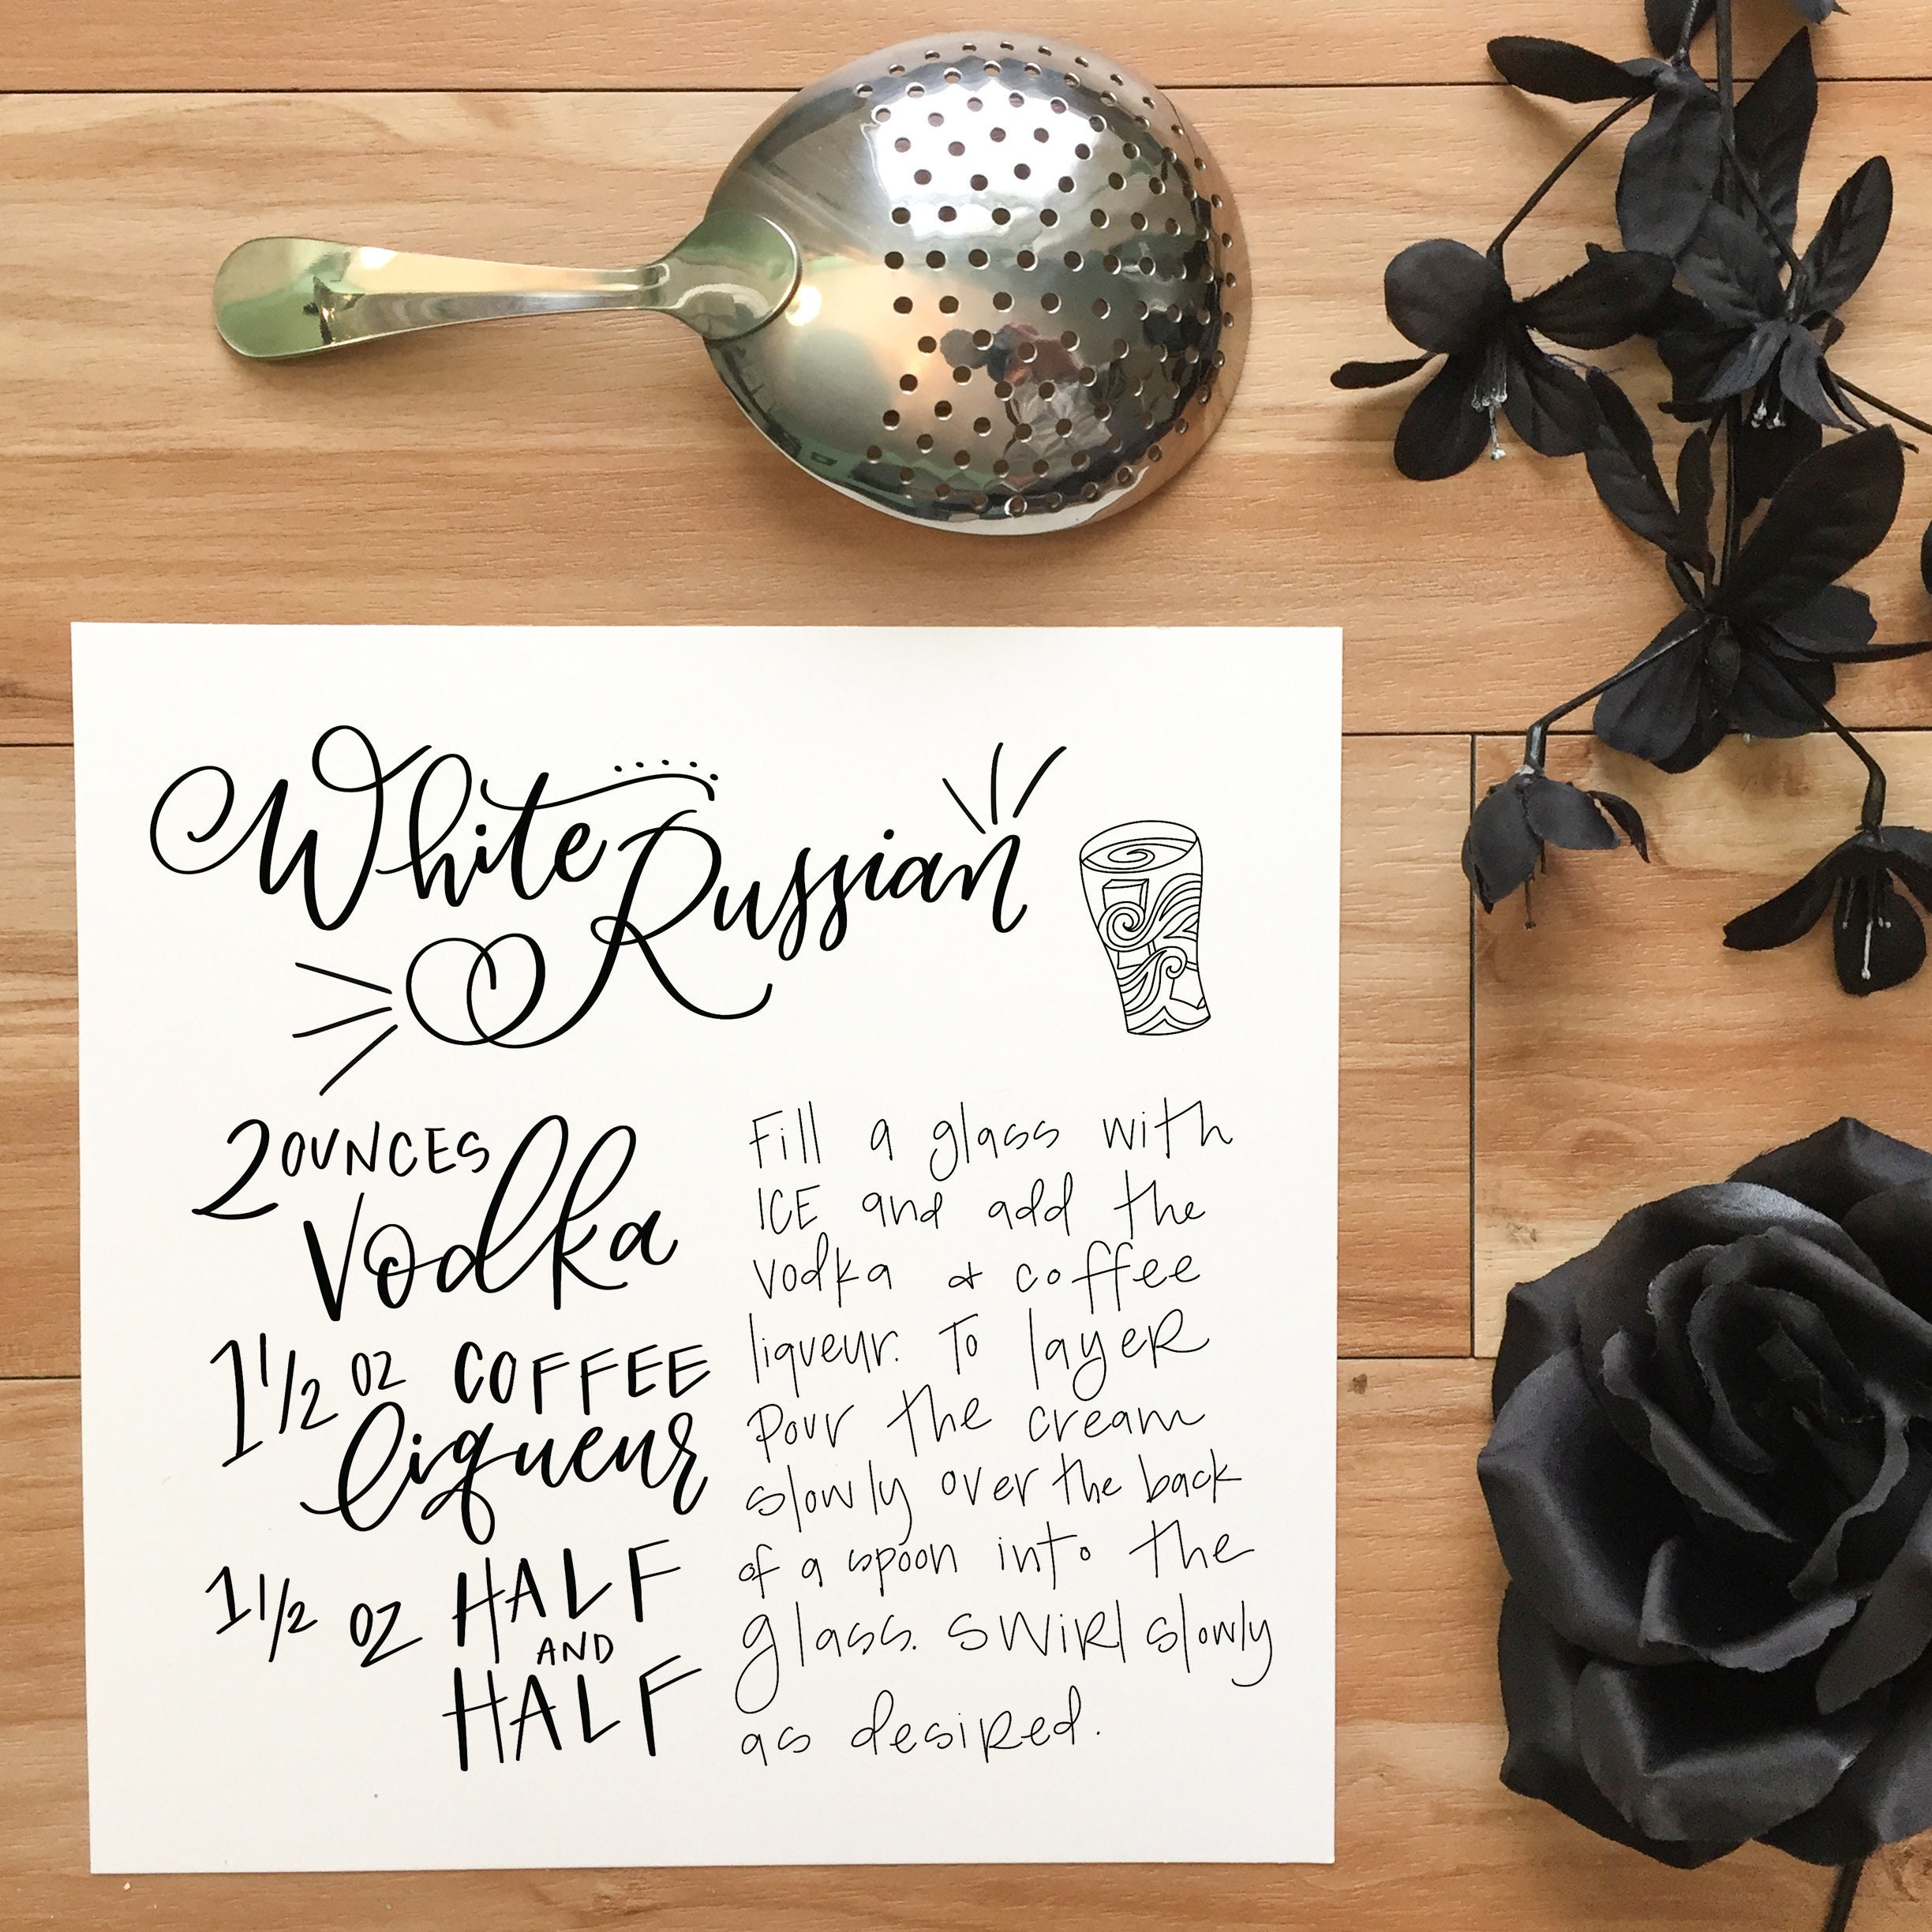 White
Russian
2 OUNCES
Vodka
1 1/2 OZ COFFEE
liqueur
1 1/2 OZ HALF
AND
HALF
Fill a glass with
ICE and add the
vodka & coffee
liqueur. To layer
pour the cream
slowly over the back
of a spoon into the
glass. Swirl slowly
as desired.